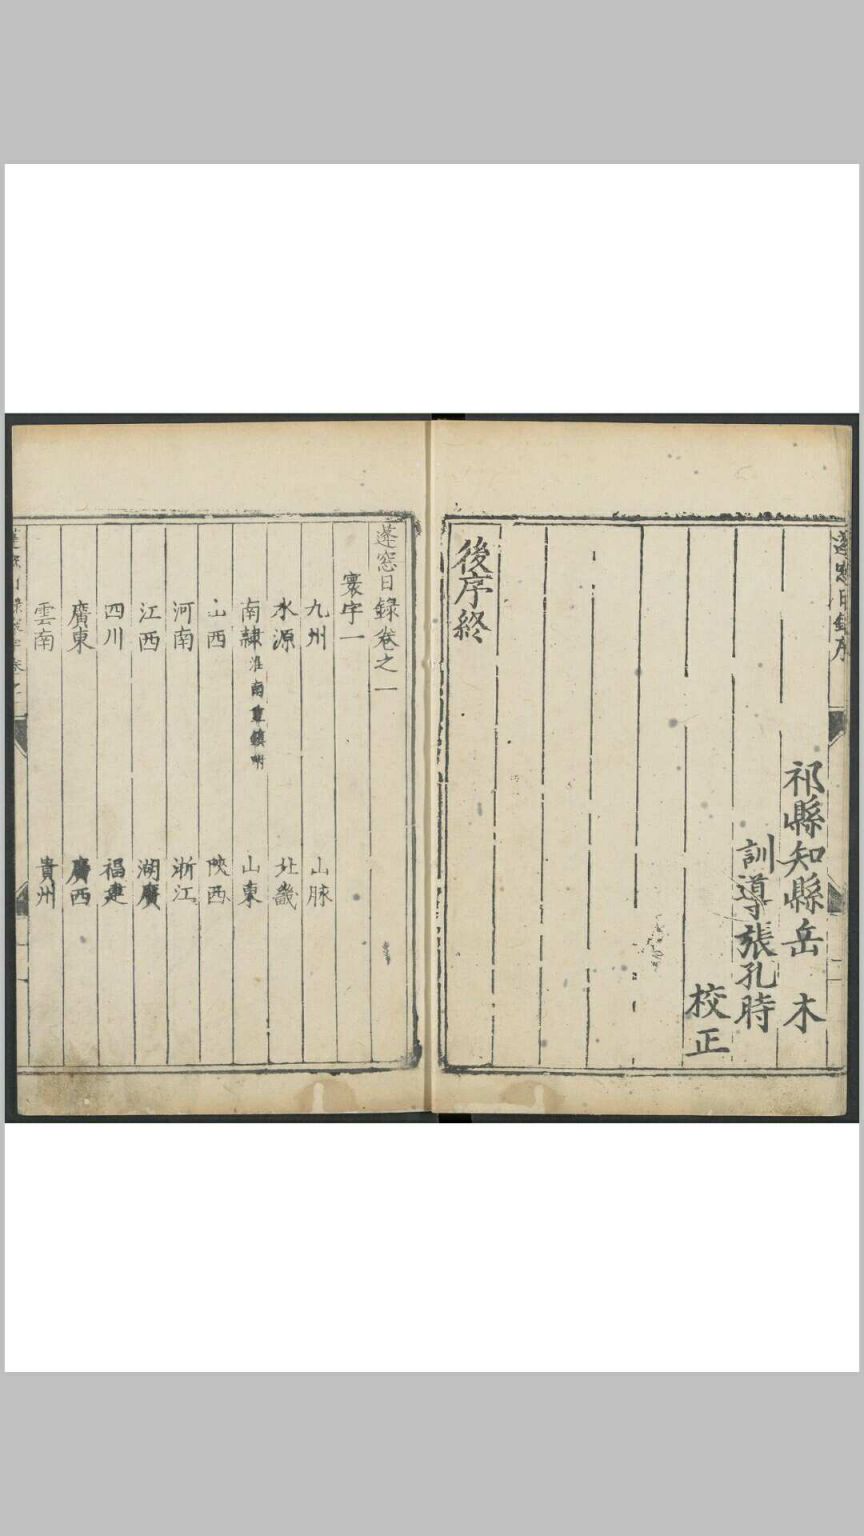 蓬窓日錄序
祁縣知縣岳 木
訓導張孔時
校正
後序終
蓬窓日錄卷之一
寰宇一
九州 山脉
水源 北畿
南隷 山東
山西 陜西
河南 浙江
江西 湖廣
四川 福建
廣東 廣西
雲南 貴州